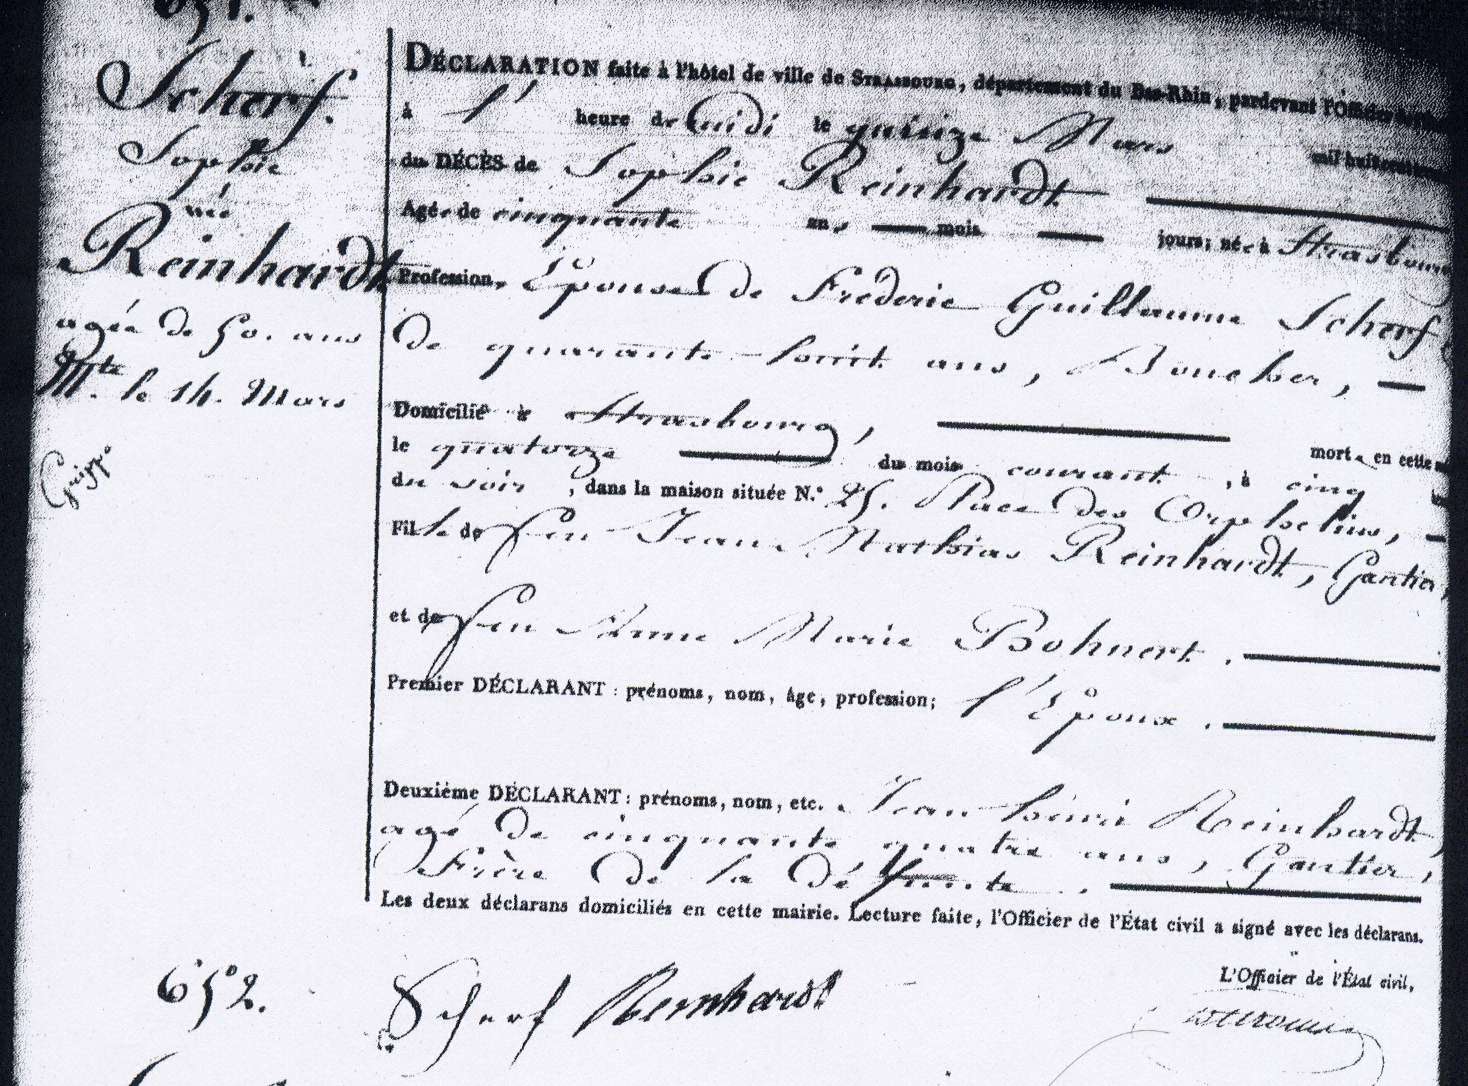 651.
Scherf.
Sophie
née
Reinhardt
agée de 50. ans
Mte. le 14. Mars
Grippe
DÉCLARATION faite à l'hôtel de ville de STRASBOURG, département du Bas-Rhin, pardevant l'Officier
à l' heure de midi le quinze Mars mil huit cent
du DÉCÈS de Sophie Reinhardt
Agée de cinquante ans — mois — jours; née à Strasbourg
Profession, Épouse de Fréderic Guillaume Scherf
de quarante-huit ans, Boucher, —
Domicilié à Strasbourg, — morte en cette
le quatorze — du mois courant, à cinq
du soir, dans la maison située N.° 25. Place des Orphelins, —
Fille de feu Jean Mathias Reinhardt, Gantier,
et de feu Anne Marie Bohnert. —
Premier DÉCLARANT : prénoms, nom, âge, profession; l'Époux. —
Deuxième DÉCLARANT : prénoms, nom, etc. Jean Henri Reinhardt,
agé de cinquante quatre ans, Gantier,
Frère de la défunte. —
Les deux déclarans domiciliés en cette mairie. Lecture faite, l'Officier de l'État civil a signé avec les déclarans.
L'Officier de l'État civil,
652.
Scherf Reinhardt